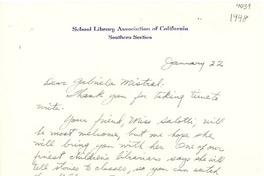 4039
1948
School Library Association of California
Southern Section
January 22
Dear Gabriela Mistral:
Thank you for taking time to
write.
Your friend, Miss Salotti, will
be most welcome, but we hope she
will bring you with her. One of our
finest children's librarians says she will
tell stories to classes, so you can